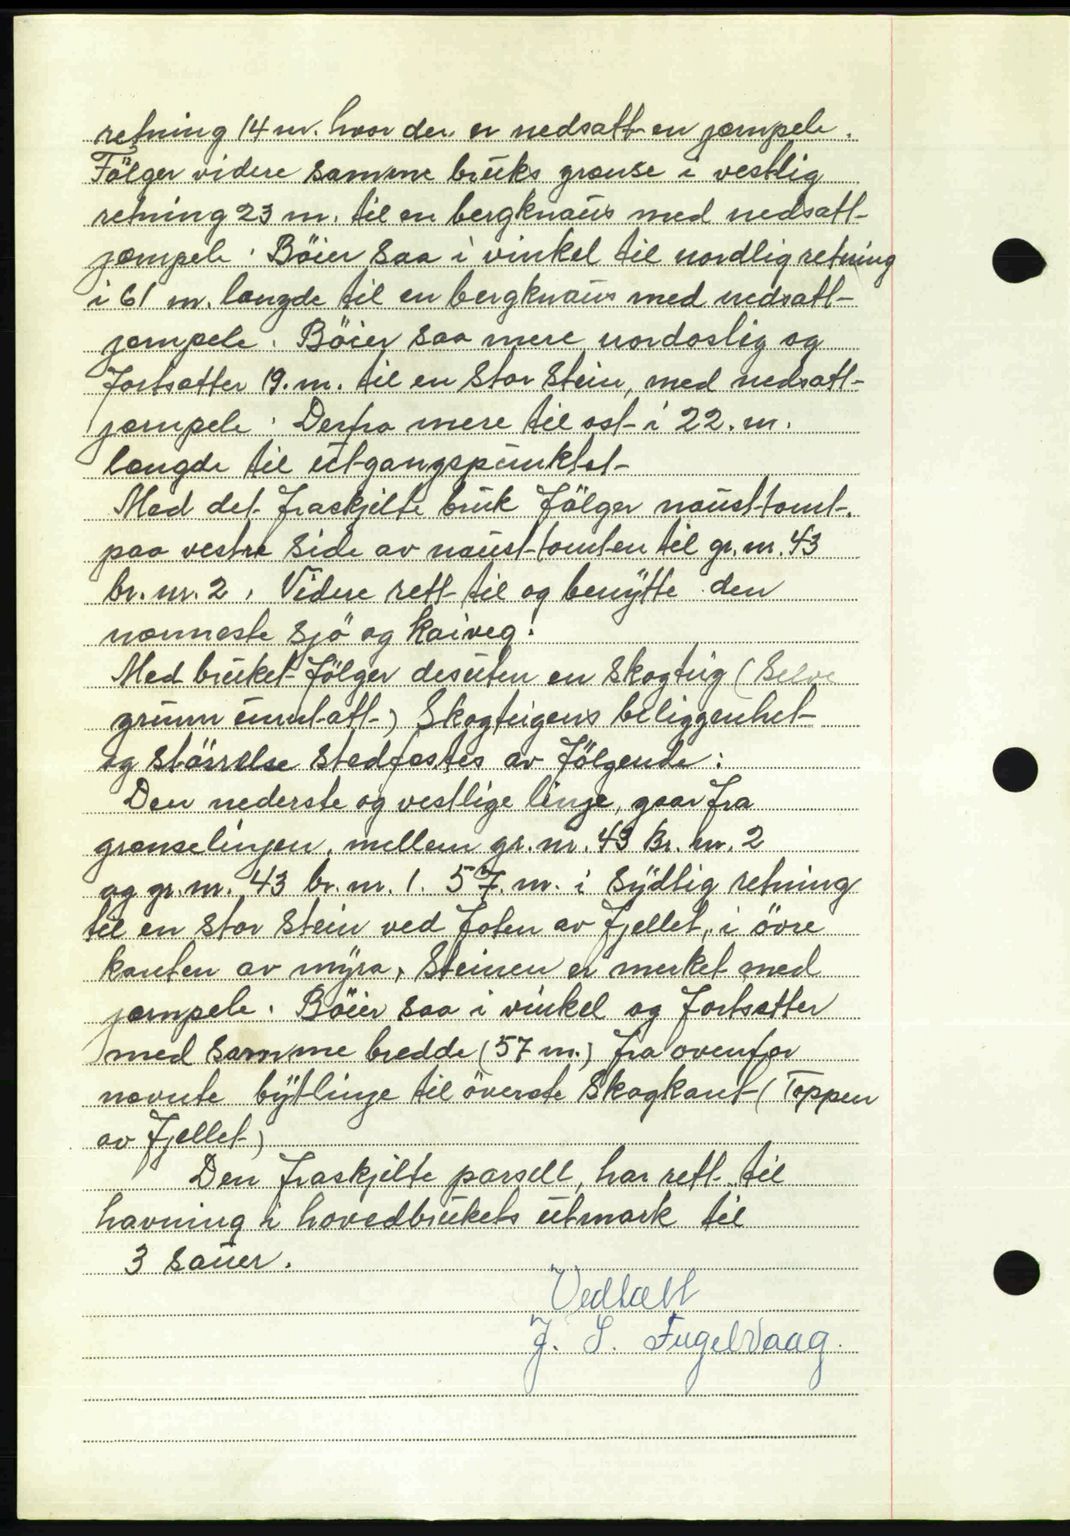 retning 14 m. hvor der er nedsatt en jærnpele.
Følger videre samme bruks grænse i vestlig
retning 23 m. til en bergknaus med nedsatt
jærnpele. Böier saa i vinkel til nordlig retning
i 61 m. længde til en bergknaus med nedsatt
jærnpele. Böier saa mere nordøslig og
fortsætter 19. m. til en stor stein, med nedsatt
jærnpele. Derfra mere til ost i 22. m.
længde til utgangspunktet
Med det fraskjelte bruk fölger nausttomt.
paa vestre side av naust-tomten til gr. nr. 43
br. nr. 2. Videre rett til og benytte den
nærmeste sjö og kaiveg.
Med bruket fölger desuten en skogteig (Selve
grunn unntatt) Skogteigens beliggenhet
og störrelse stedfestes av fölgende:
Den nederste og vestlige linje, gaar fra
grænselinjen, mellem gr. nr. 43 br. nr. 2
og gr. nr. 43 br. nr. 1. 57. m. i sydlig retning
til en stor stein ved foten av fjellet, i övre
kanten av myra. Steinen er merket med
jærnpele. Böier saa i vinkel og fortsætter
med samme bredde (57 m.) fra ovenfor
nævnte bytlinje til överste skogkant (Toppen
av fjellet)
Den fraskjelte parsell, har rett til
havning i hovedbrukets utmark til
3 sauer.
Vedtatt
J. S. Fugelvaag.